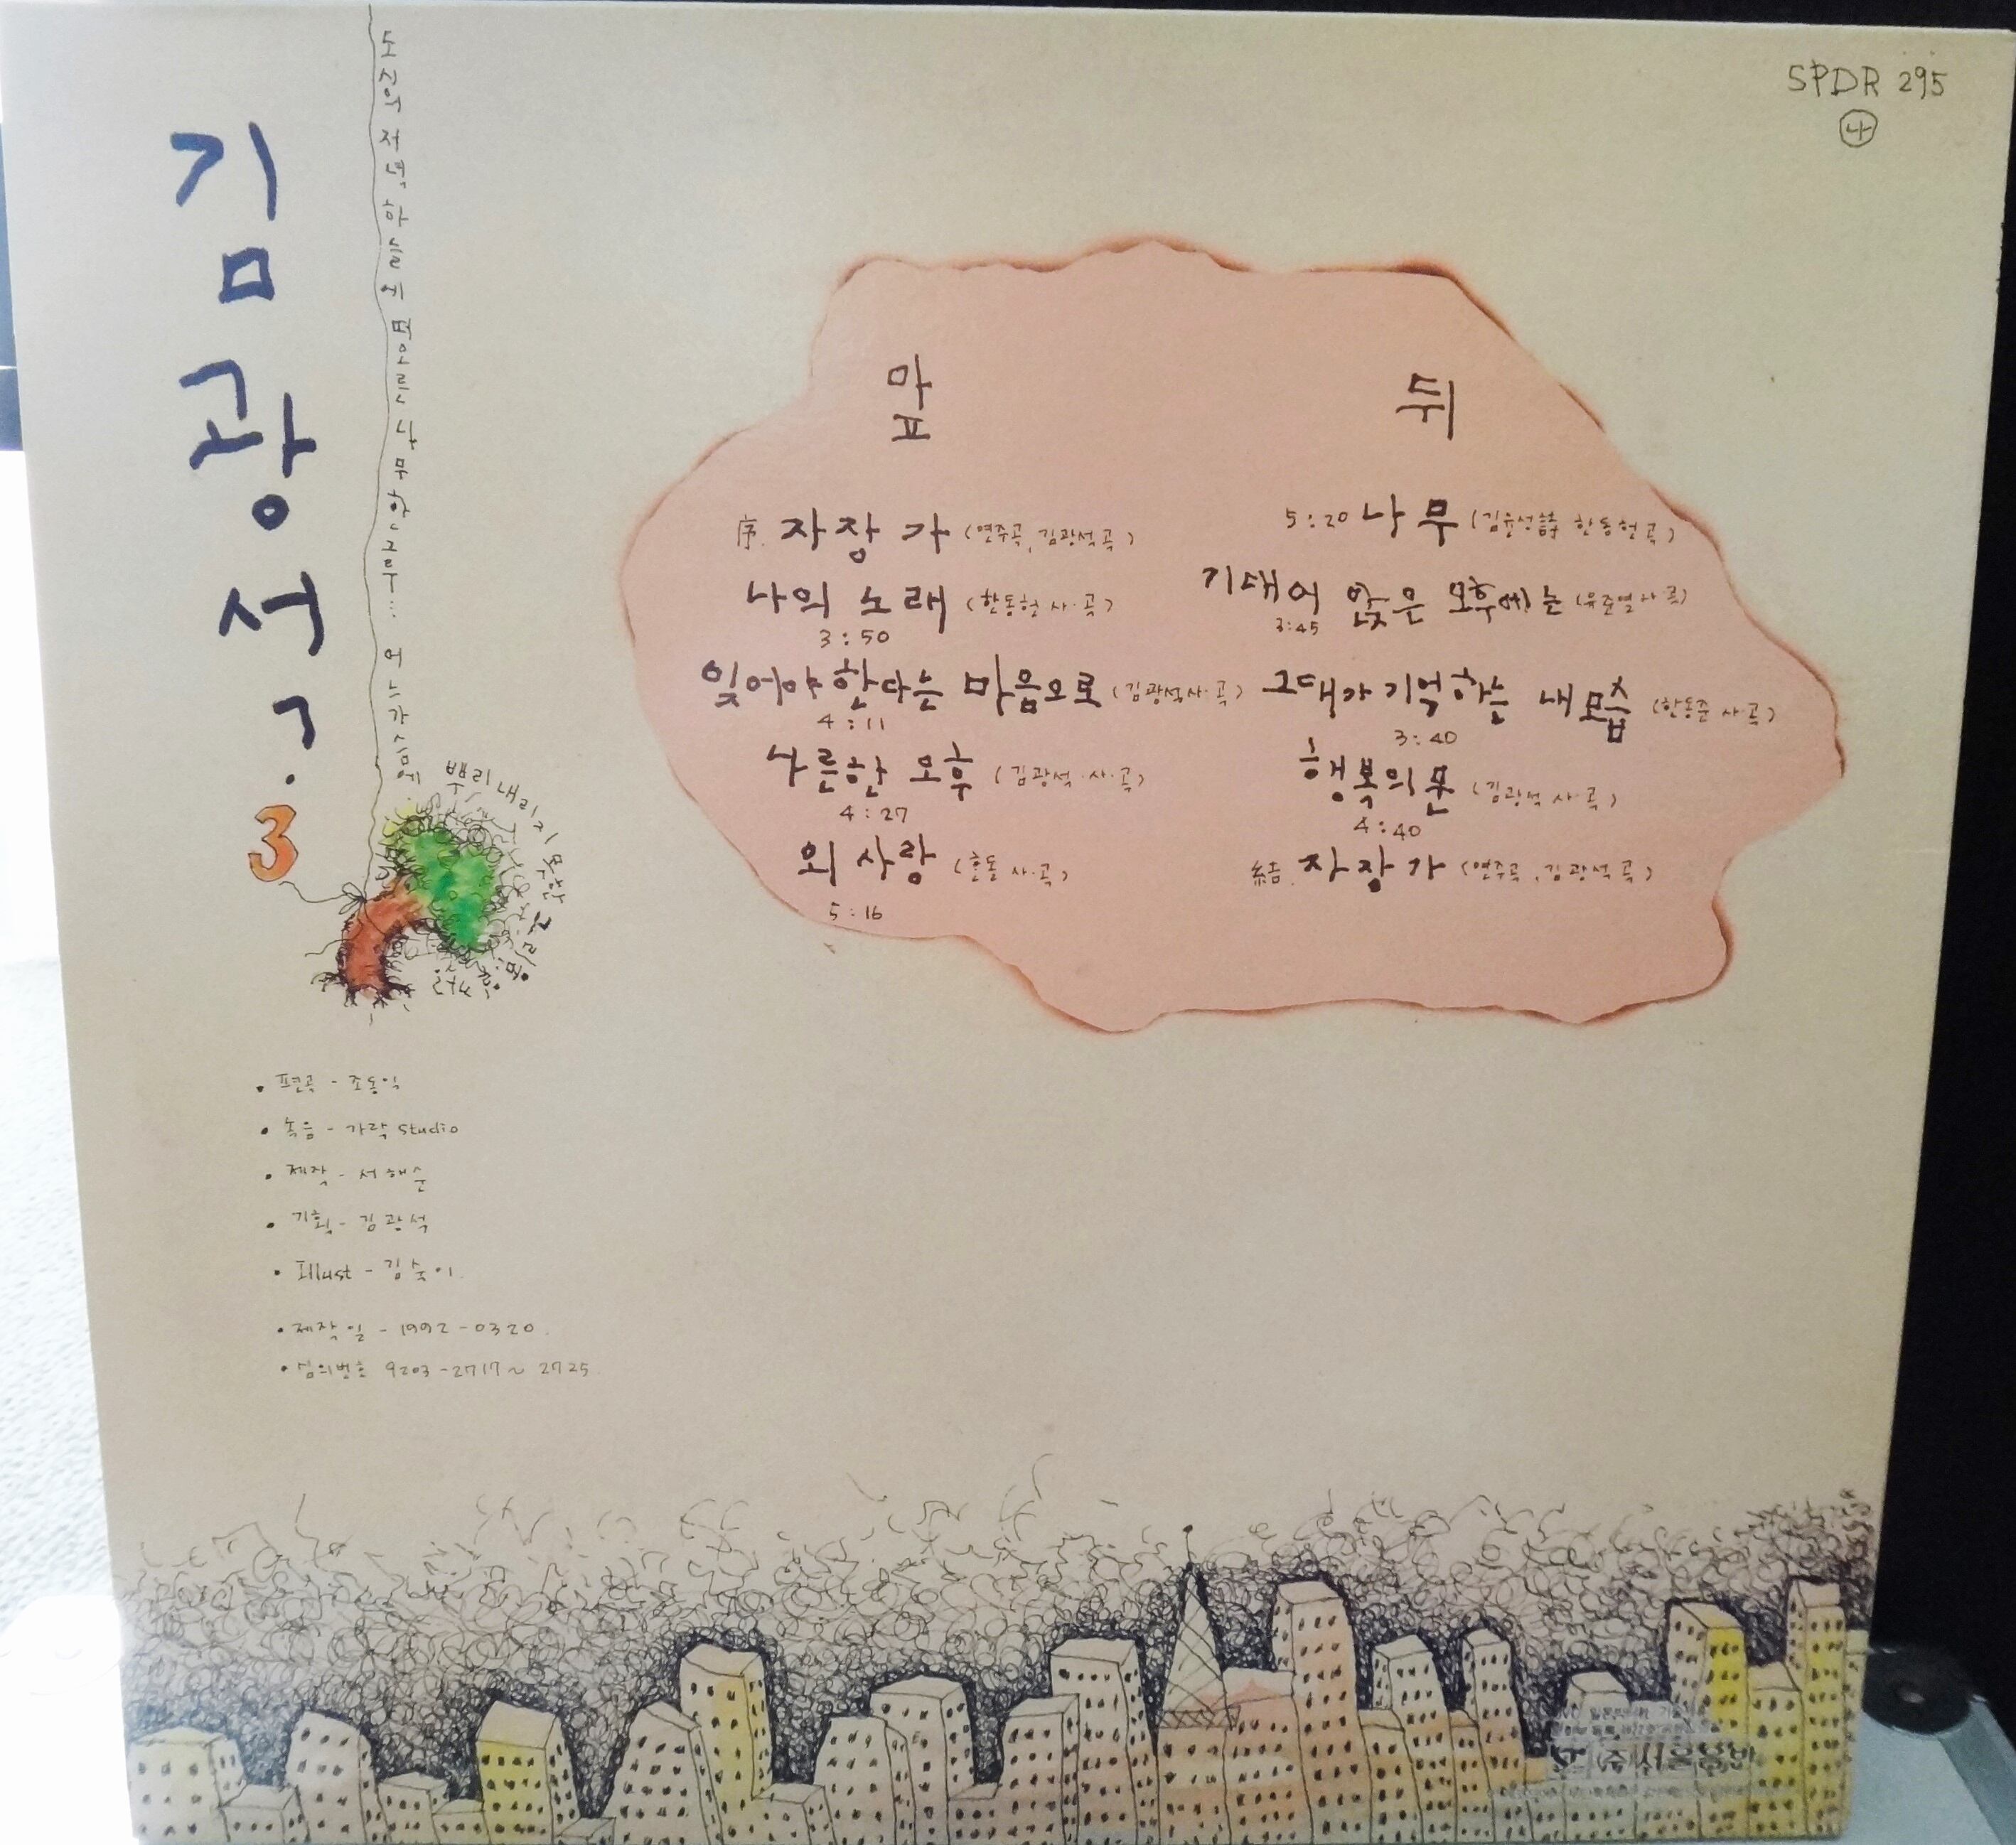 SPDR 295
나
김광석.3
도시의 저녁 하늘에 떠오르는 나무 한그루... 어느 가슴에
뿌리내리지 못한
앞
序. 자장가 (연주곡, 김광석 곡)
나의 노래 (한동헌 사·곡)
3:50
잊어야 한다는 마음으로 (김광석 사·곡)
4:11
나른한 오후 (김광석·사·곡)
4:27
외사랑 (한동 사·곡)
5:16
뒤
5:20 나무 (김윤성 詩 한동헌 곡)
기대어 앉은 오후에는 (유준열 사·곡)
3:45
그대가 기억하는 내모습 (한동준 사·곡)
3:40
행복의 문 (김광석 사·곡)
4:40
結. 자장가 (연주곡, 김광석 곡)
• 편곡 - 조동익
• 녹음 - 가락 Studio
• 제작 - 서해순
• 기획 - 김광석
• Illust - 김숙이.
• 제작일 - 1992-0320.
• 심의번호 9203-2717~2725
(주)서울음반